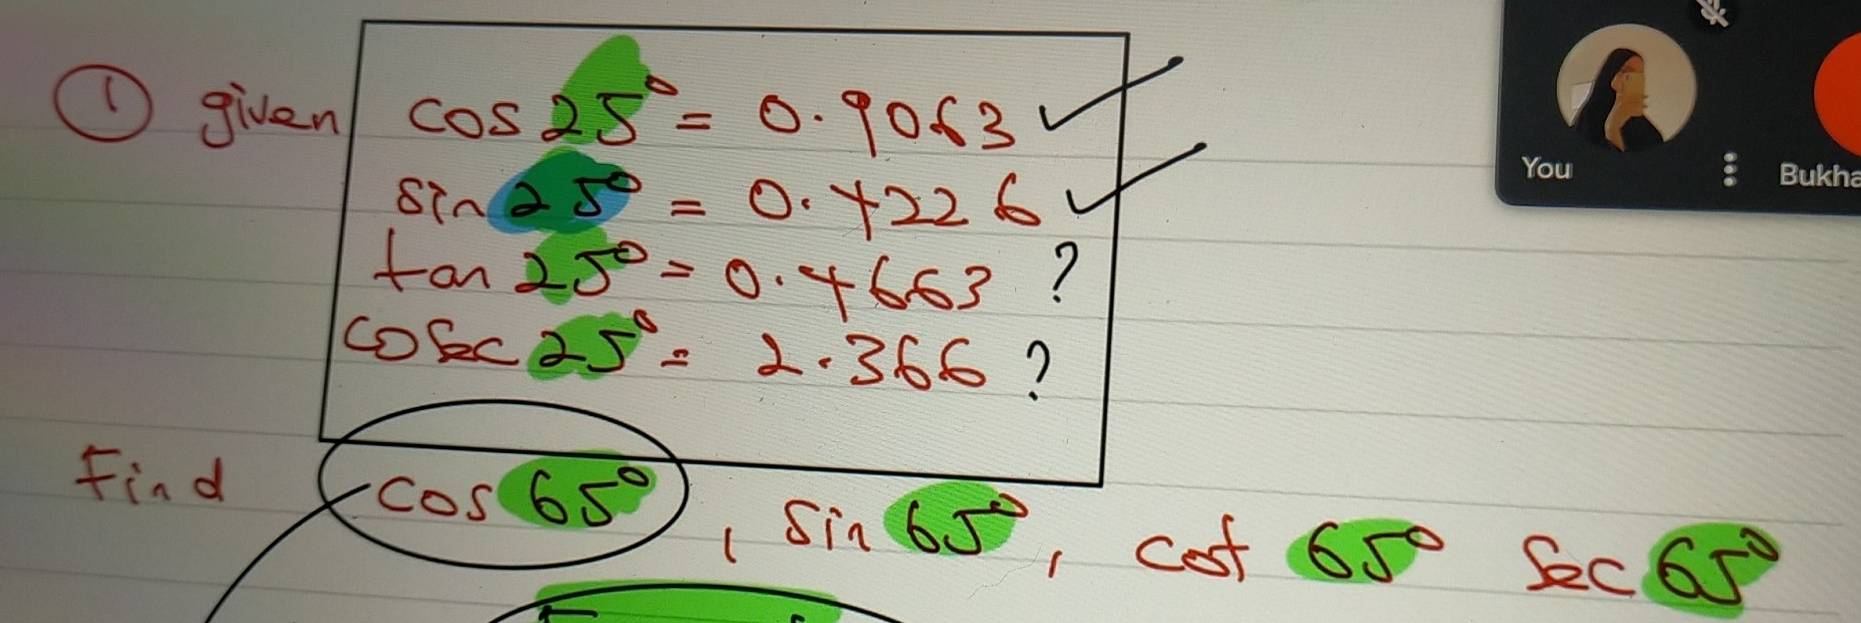 ① given cos 25° = 0.9063 ✓
sin 25° = 0.4226 ✓
tan 25° = 0.4663 ?
cosec 25° = 2.366 ?
Find cos 65° , sin 65° , cot 65° sec 65°
You